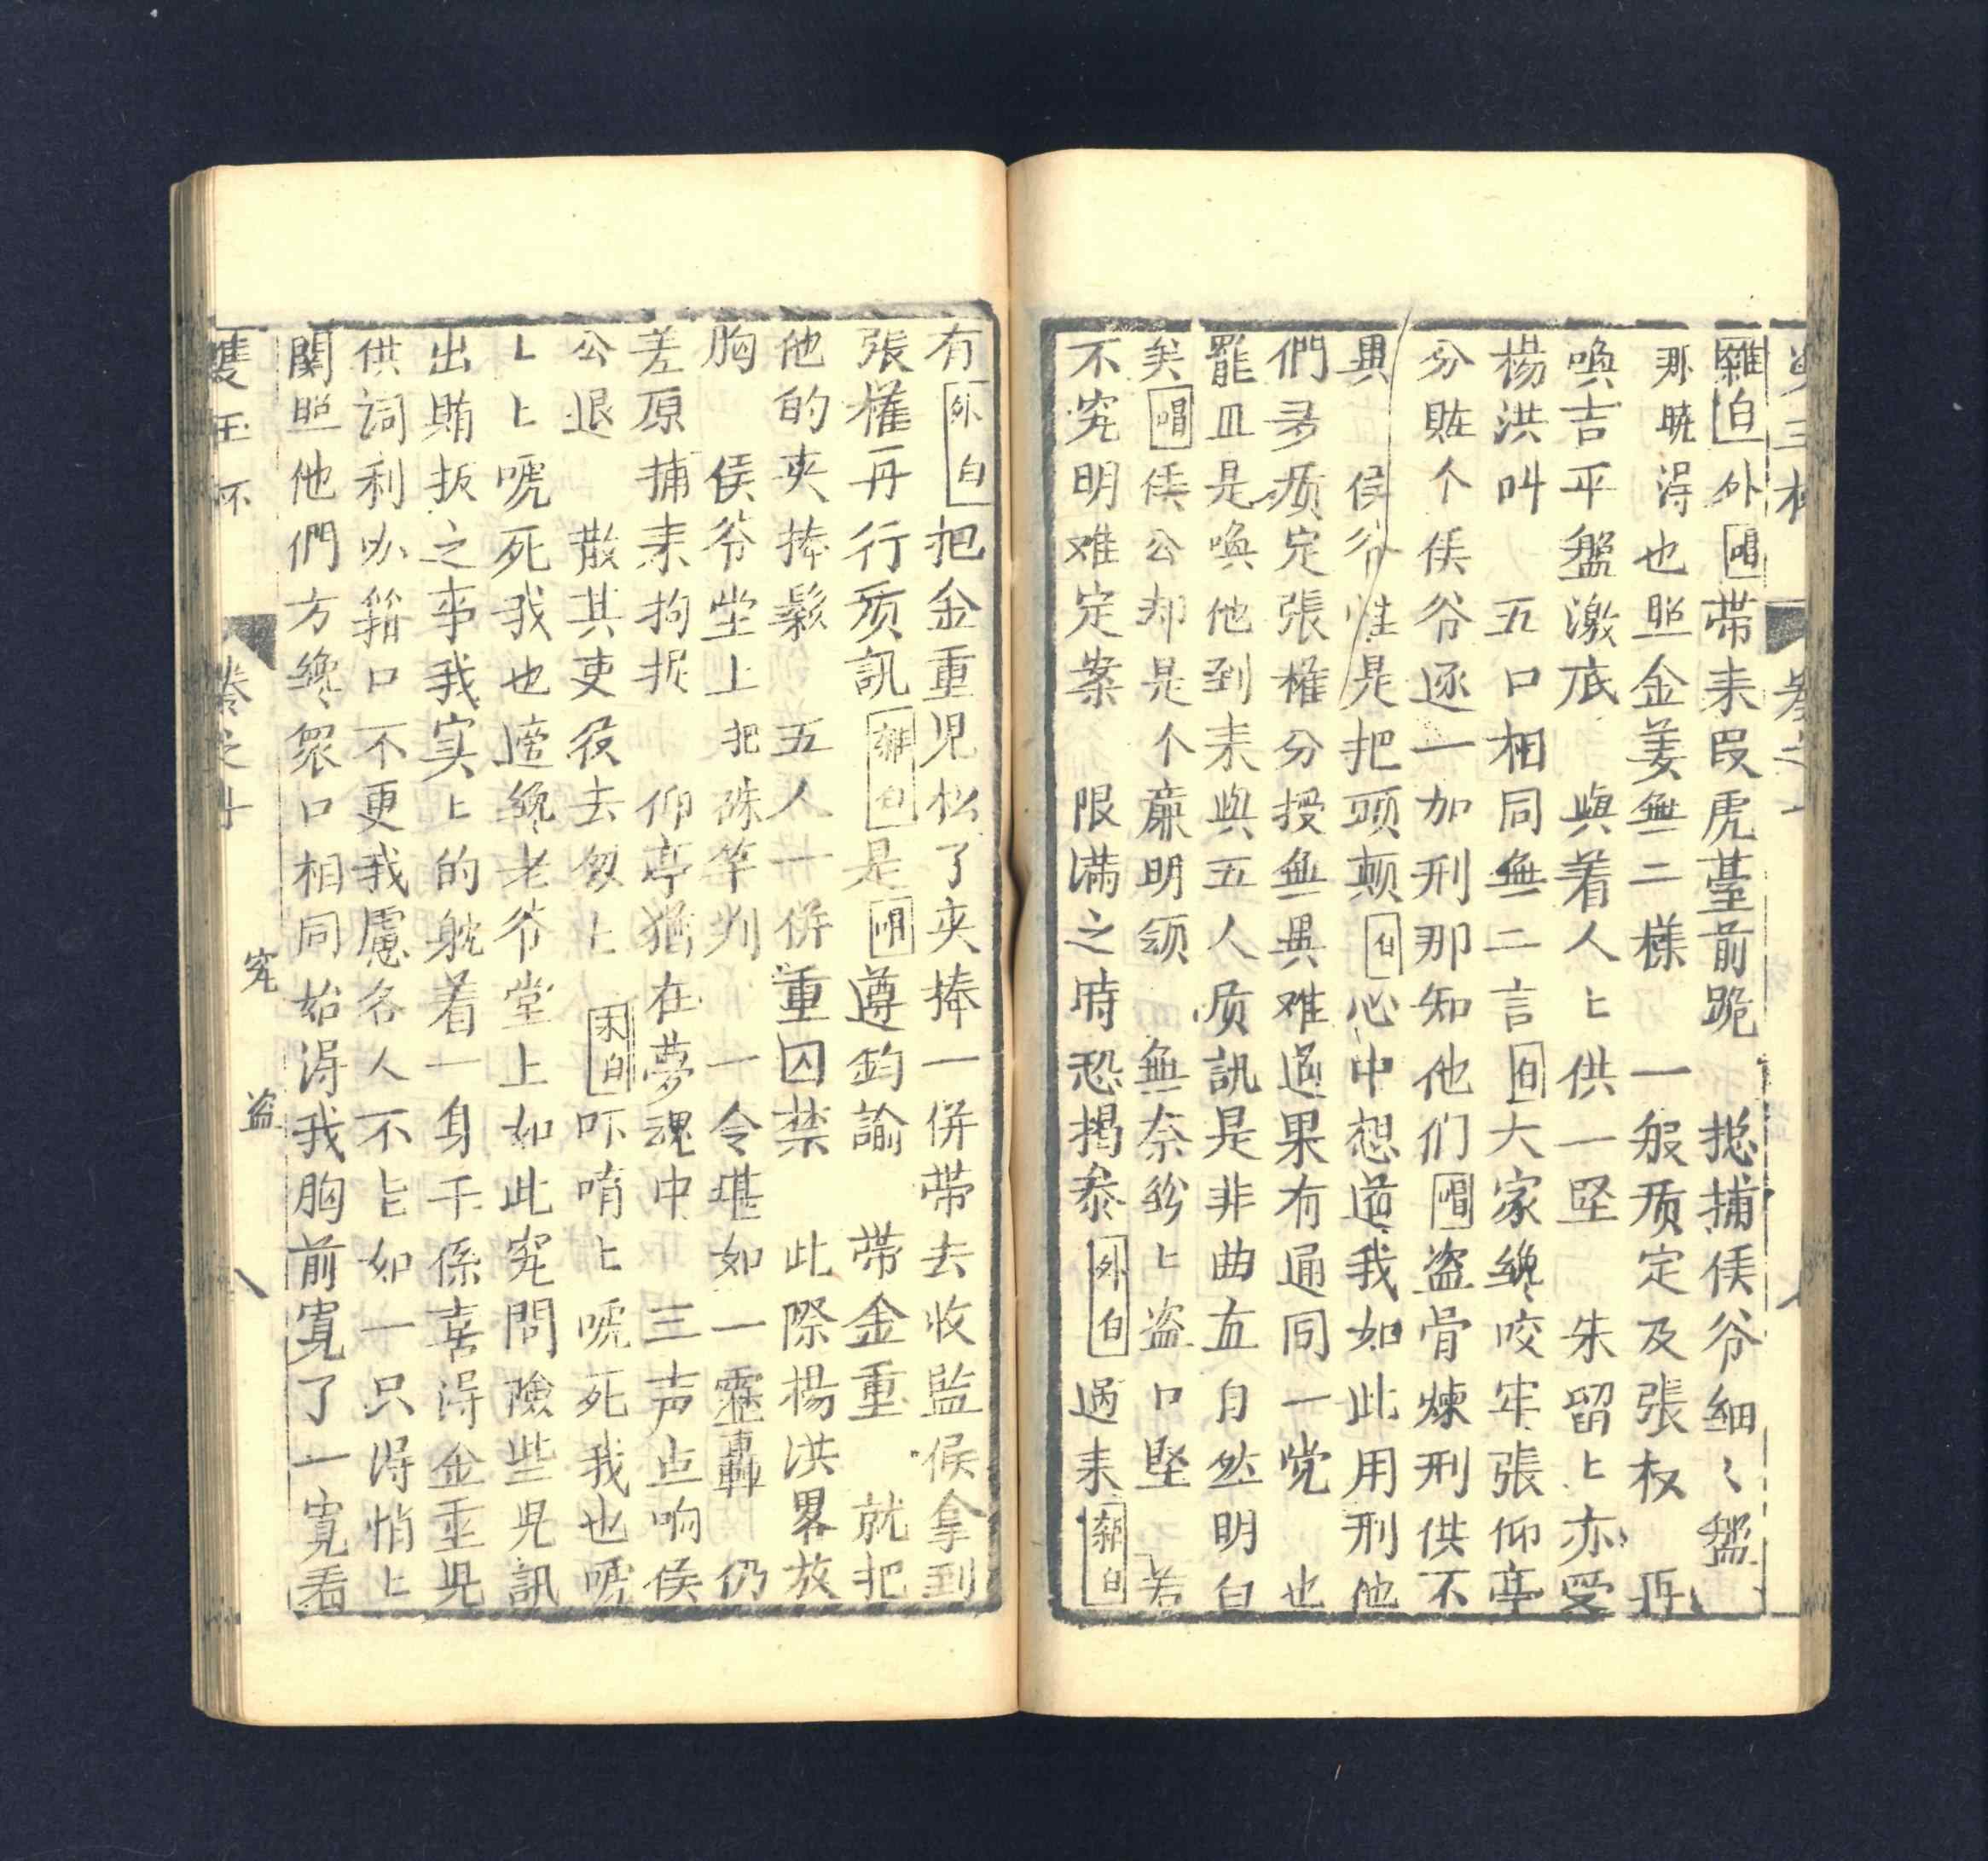 雜白外唱帶来叚虎臺前跪　捴捕侯爷细〻盤
那晓淂也照金姜無二樣　一般质定及張权　再
喚吉平盤激底　與着人〻供一坚　朱留〻亦受
楊洪叫　五口相同無二言白大家纔咬牢張仰亭
分賍个侯爷逐一加刑那知他们唱盗骨煉刑供不
異　侯爷惟是把頭颠白心中想道我如此用刑他
們多质定張権分授無異难道果有通同一党　也
罷且是喚他到来與五人质訊是非曲直自然明白
矣唱侯公却是个廉明领　無奈纷〻盗口堅　若
不究明难定案　限满之時恐揭参外白过来雜白
有外白把金重児松了夹捧一併帶去收監候拿到
張權再行质訊雜白是唱遵鈞諭　帶金重　就把
他的夹捧鬆　五人一併重囚禁　此際楊洪畧放
胸　侯爷坐上把硃竿判　一令堪如一霊轟　仍
差原捕来拘扳　仰亭猶在夢魂中　三声点响侯
公退　散其吏役去匆〻　末白吓唷〻唬死我也唬
〻〻唬死我也造纔老爷堂上如此究問險些児訊
出賄扳之事我实〻的躭着一身干係喜淂金重児
供词利㕥籍口不更我慮各人不能如一只淂悄〻
関照他們方纔衆口相同始淂我胸前寬了一寬看
雙玉杯　卷之十　究盗